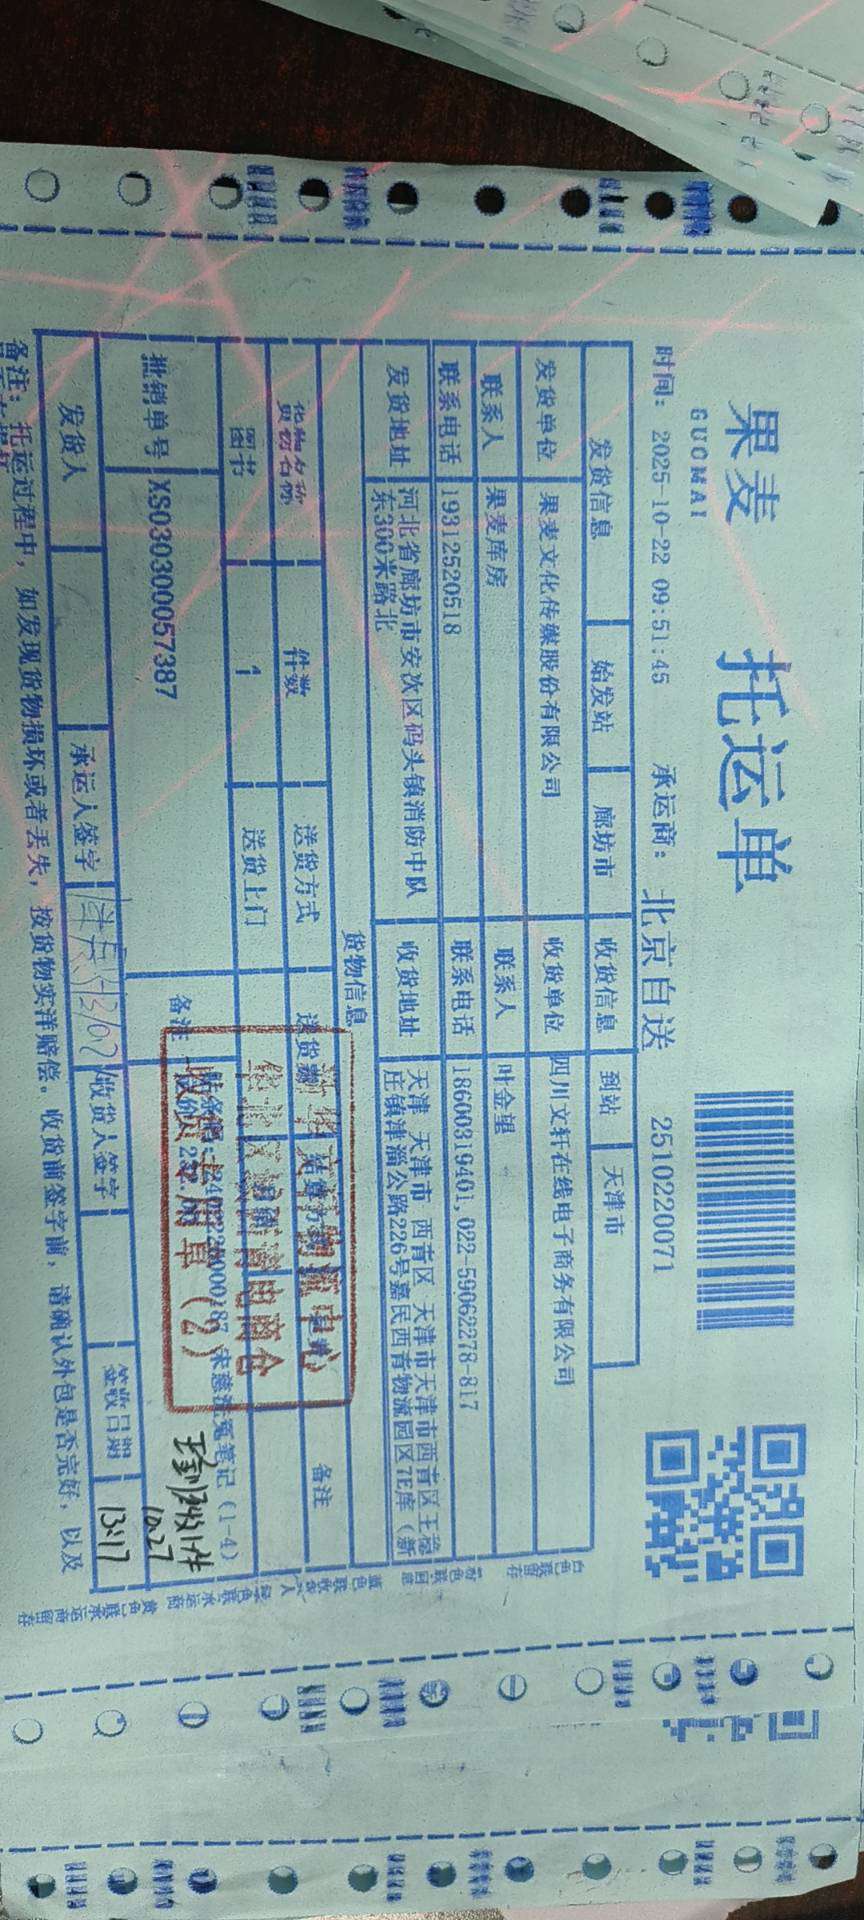 果麦
GUOMAI
托运单
时间： 2025-10-22 09:51:45 承运商： 北京自送 2510220071
发货信息 始发站 廊坊市 收货信息 到站 天津市
发货单位 果麦文化传媒股份有限公司 收货单位 四川文轩在线电子商务有限公司
联系人 果麦库房 联系人 叶金望
联系电话 19312520518 联系电话 18600319401,022-59062278-817
发货地址 河北省廊坊市安次区码头镇消防中队东300米路北 收货地址 天津 天津市 西青区 天津市天津市西青区王稳庄镇津淄公路226号嘉民西青物流园区7E库（新
货物信息
货物名称 件数 送货方式 送货费 备注
图书 1 送货上门
批销单号 XS030300057387 备注 冤笔记（1-4）
物流中心
电商仓
收货专用章（2）
10.27
发货人 承运人签字 收货人签字 签收日期 13:17
备注：托运过程中，如发现货物损坏或者丢失，按货物实洋赔偿。收货前签字前，请确认外包是否完好，以及
白色联留存 粉色联回息 蓝色联收货人 绿色联承运商 黄色联承运商留存